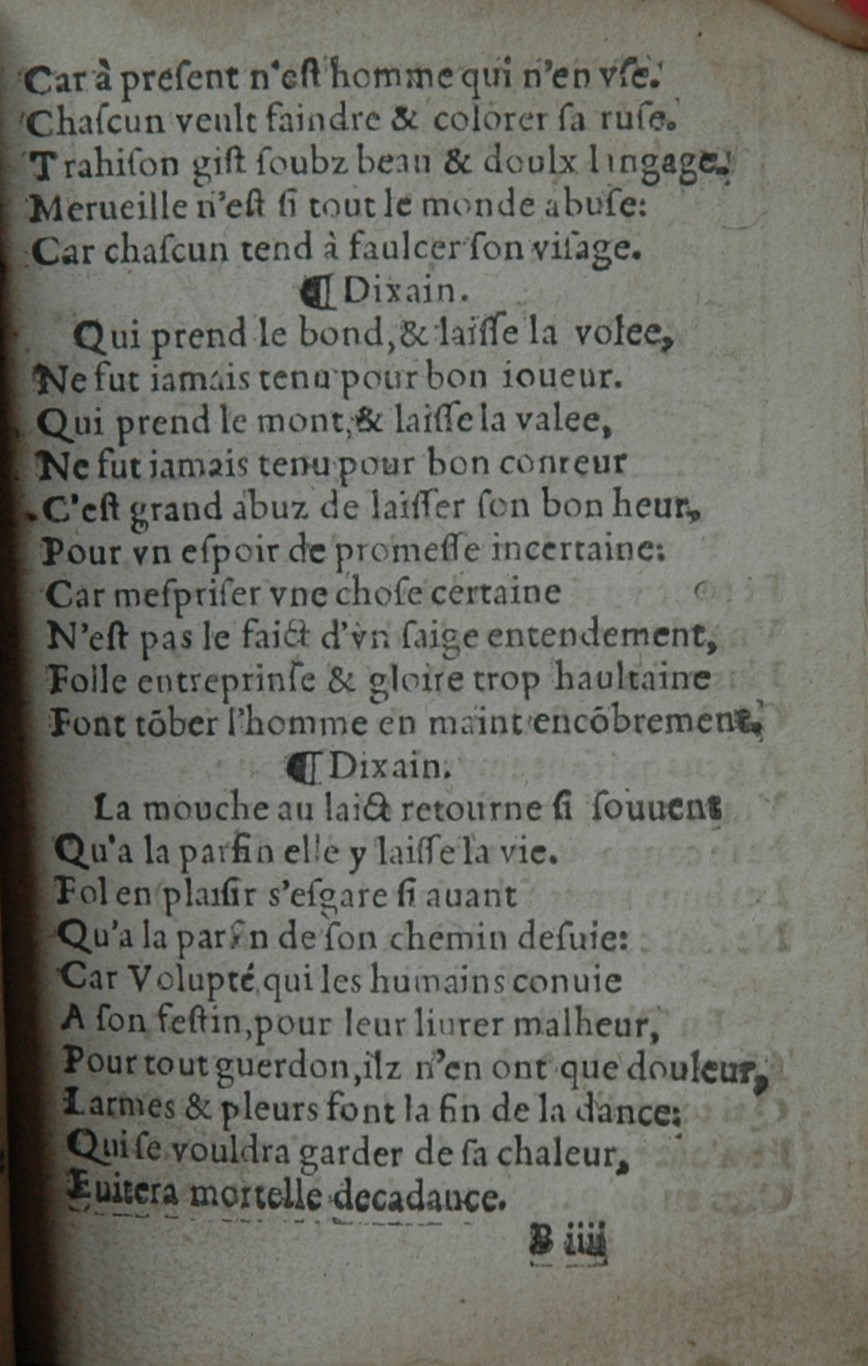 Car à preſent n'eſt homme qui n'en vſe.
Chaſcun veult faindre & colorer ſa ruſe.
Trahiſon giſt ſoubz beau & doulx lingage.
Merueille n'eſt ſi tout le monde abuſe:
Car chaſcun tend à faulcer ſon viſage.
¶ Dixain.
Qui prend le bond, & laiſſe la volee,
Ne fut iamais tenu pour bon ioueur.
Qui prend le mont, & laiſſe la valee,
Ne fut iamais tenu pour bon coureur
C'eſt grand abuz de laiſſer ſon bon heur,
Pour vn eſpoir de promeſſe incertaine:
Car meſpriſer vne choſe certaine
N'eſt pas le faict d'vn ſaige entendement,
Folle entreprinſe & gloire trop haultaine
Font tõber l'homme en maint encõbrement.
¶ Dixain.
La mouche au laict retourne ſi ſouuent
Qu'a la parfin elle y laiſſe la vie.
Fol en plaiſir s'eſgare ſi auant
Qu'a la parfin de ſon chemin deſuie:
Car Volupté qui les humains conuie
A ſon feſtin, pour leur liurer malheur,
Pour tout guerdon, ilz n'en ont que douleur,
Larmes & pleurs ſont la fin de la dance:
Qui ſe vouldra garder de ſa chaleur,
Euitera mortelle decadance.
B iiij